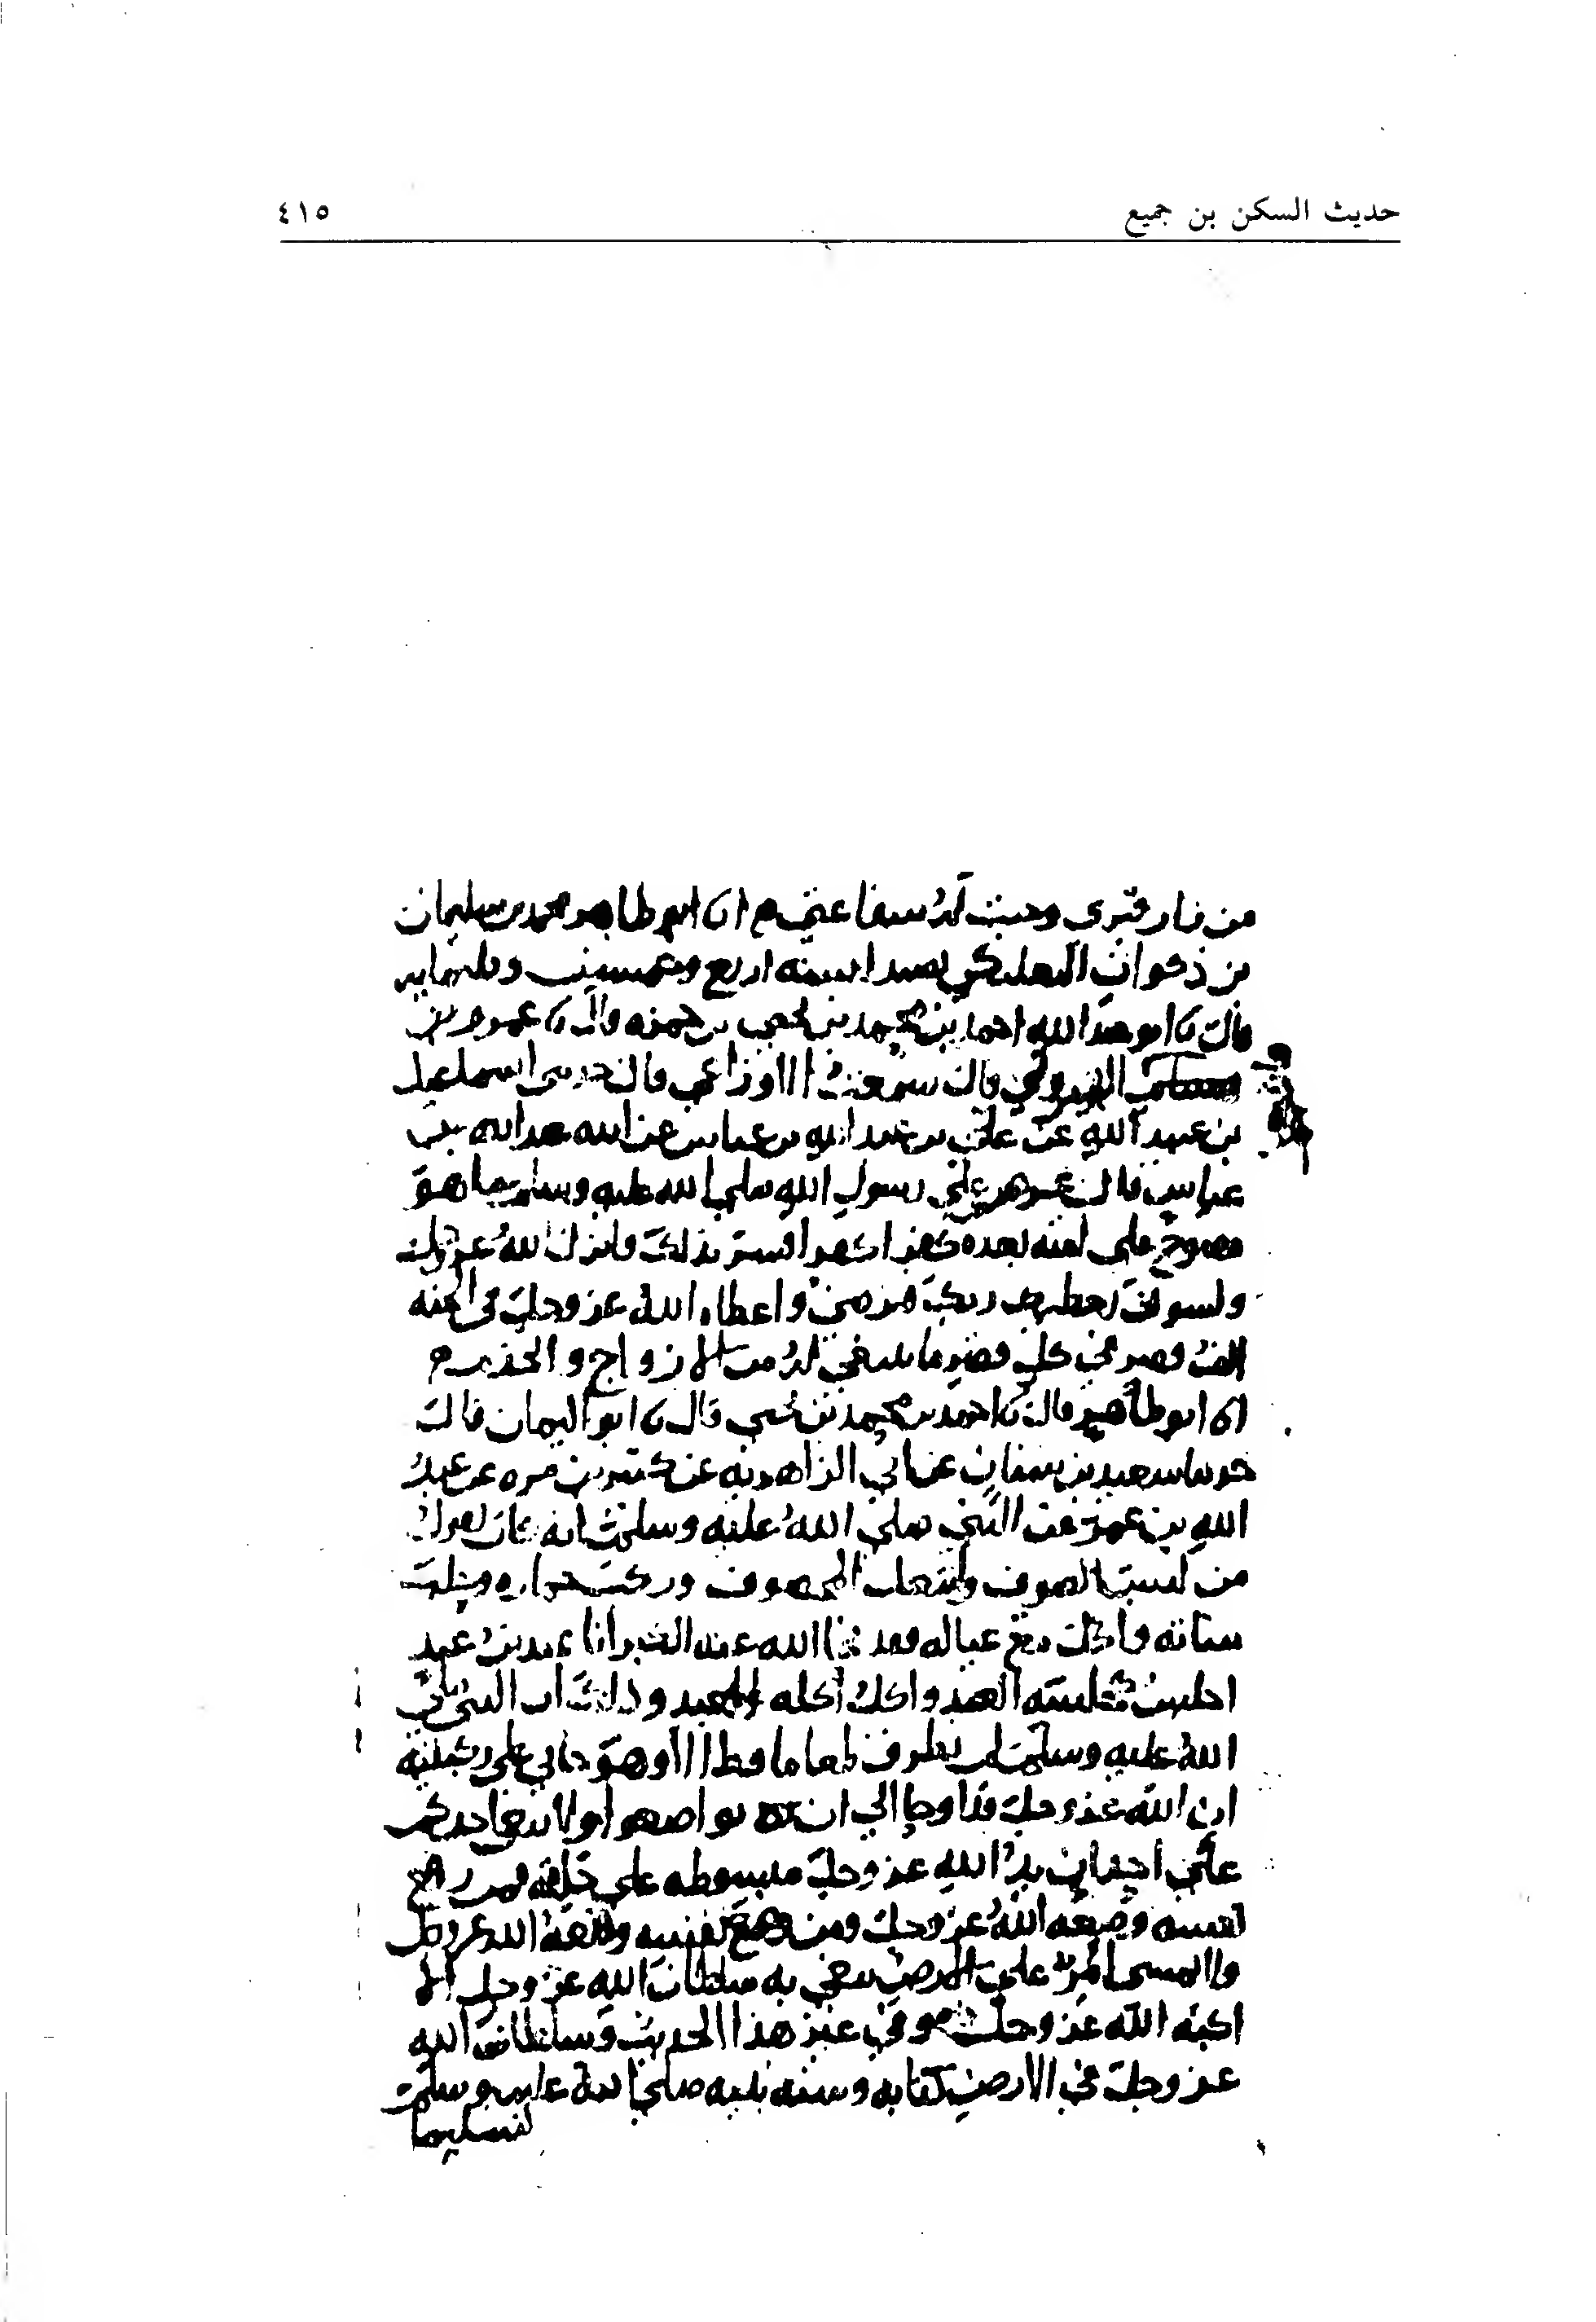 حديث السكن بن جميع ٤١٥
من زار قبري وجبت له شفاعتي ان ابو طاهر محمد بن سليمان
بن ذكوان البعلبكي بصيدا سنه اربع وخمسين وثلثمايه
قال نا ابو عبد الله احمد بن محمد بن يحيى بن حمزه قال نا عمرو بن
البيروتي قال سمعت الاوزاعي قال حدثني اسماعيل
بن عبيد الله عن علي بن عبد الله بن عباس عن ابيه عبد الله بن
عباس قال عرض علي رسول الله صلي الله عليه وسلم ما هو
مفتوح على امته بعده كفرا كفرا فسر بذلك فانزل الله عز وجل
ولسوف يعطيك ربك فترضى واعطاه الله عز وجل في الجنه
الف قصر في كل قصر ما ينبغي له من الازواج والخدم
ان ابو طاهر قال نا احمد بن محمد بن يحيى قال نا ابو اليمان قال
حدثنا سعيد بن سنان عن ابي الزاهريه عن كثير بن مره عن عبد
الله بن عمر عن النبي صلي الله عليه وسلم انه كان يقول
من لبس الصوف وانتعل المخصوف وركب حماره وحلب
شاته واكل مع عياله فقد نحا الله عنه الكبر انا عبد بن عبد
اجلس جلسه العبد واكل اكله العبد وذلك ان النبي صلي
الله عليه وسلم لم طعاما قط الا وهو جاثي على ركبتيه
ان الله عز وجل قد اوحا الي ان تواضعوا ولا يبغي احدكم
علي احد ان يد الله عز وجل مبسوطه علي خلقه فمن رفع
نفسه وضعه الله عز وجل ومن وضع نفسه رفعه الله عز وجل
ولا يمشي امرؤ علي الارض يبغي به سلطان الله عز وجل الا
اكبه الله عز وجل في غير هذا الحديث وسلطان الله
عز وجل في الارض كتابه وسنه نبيه صلي الله عليه وسلم
تسليما